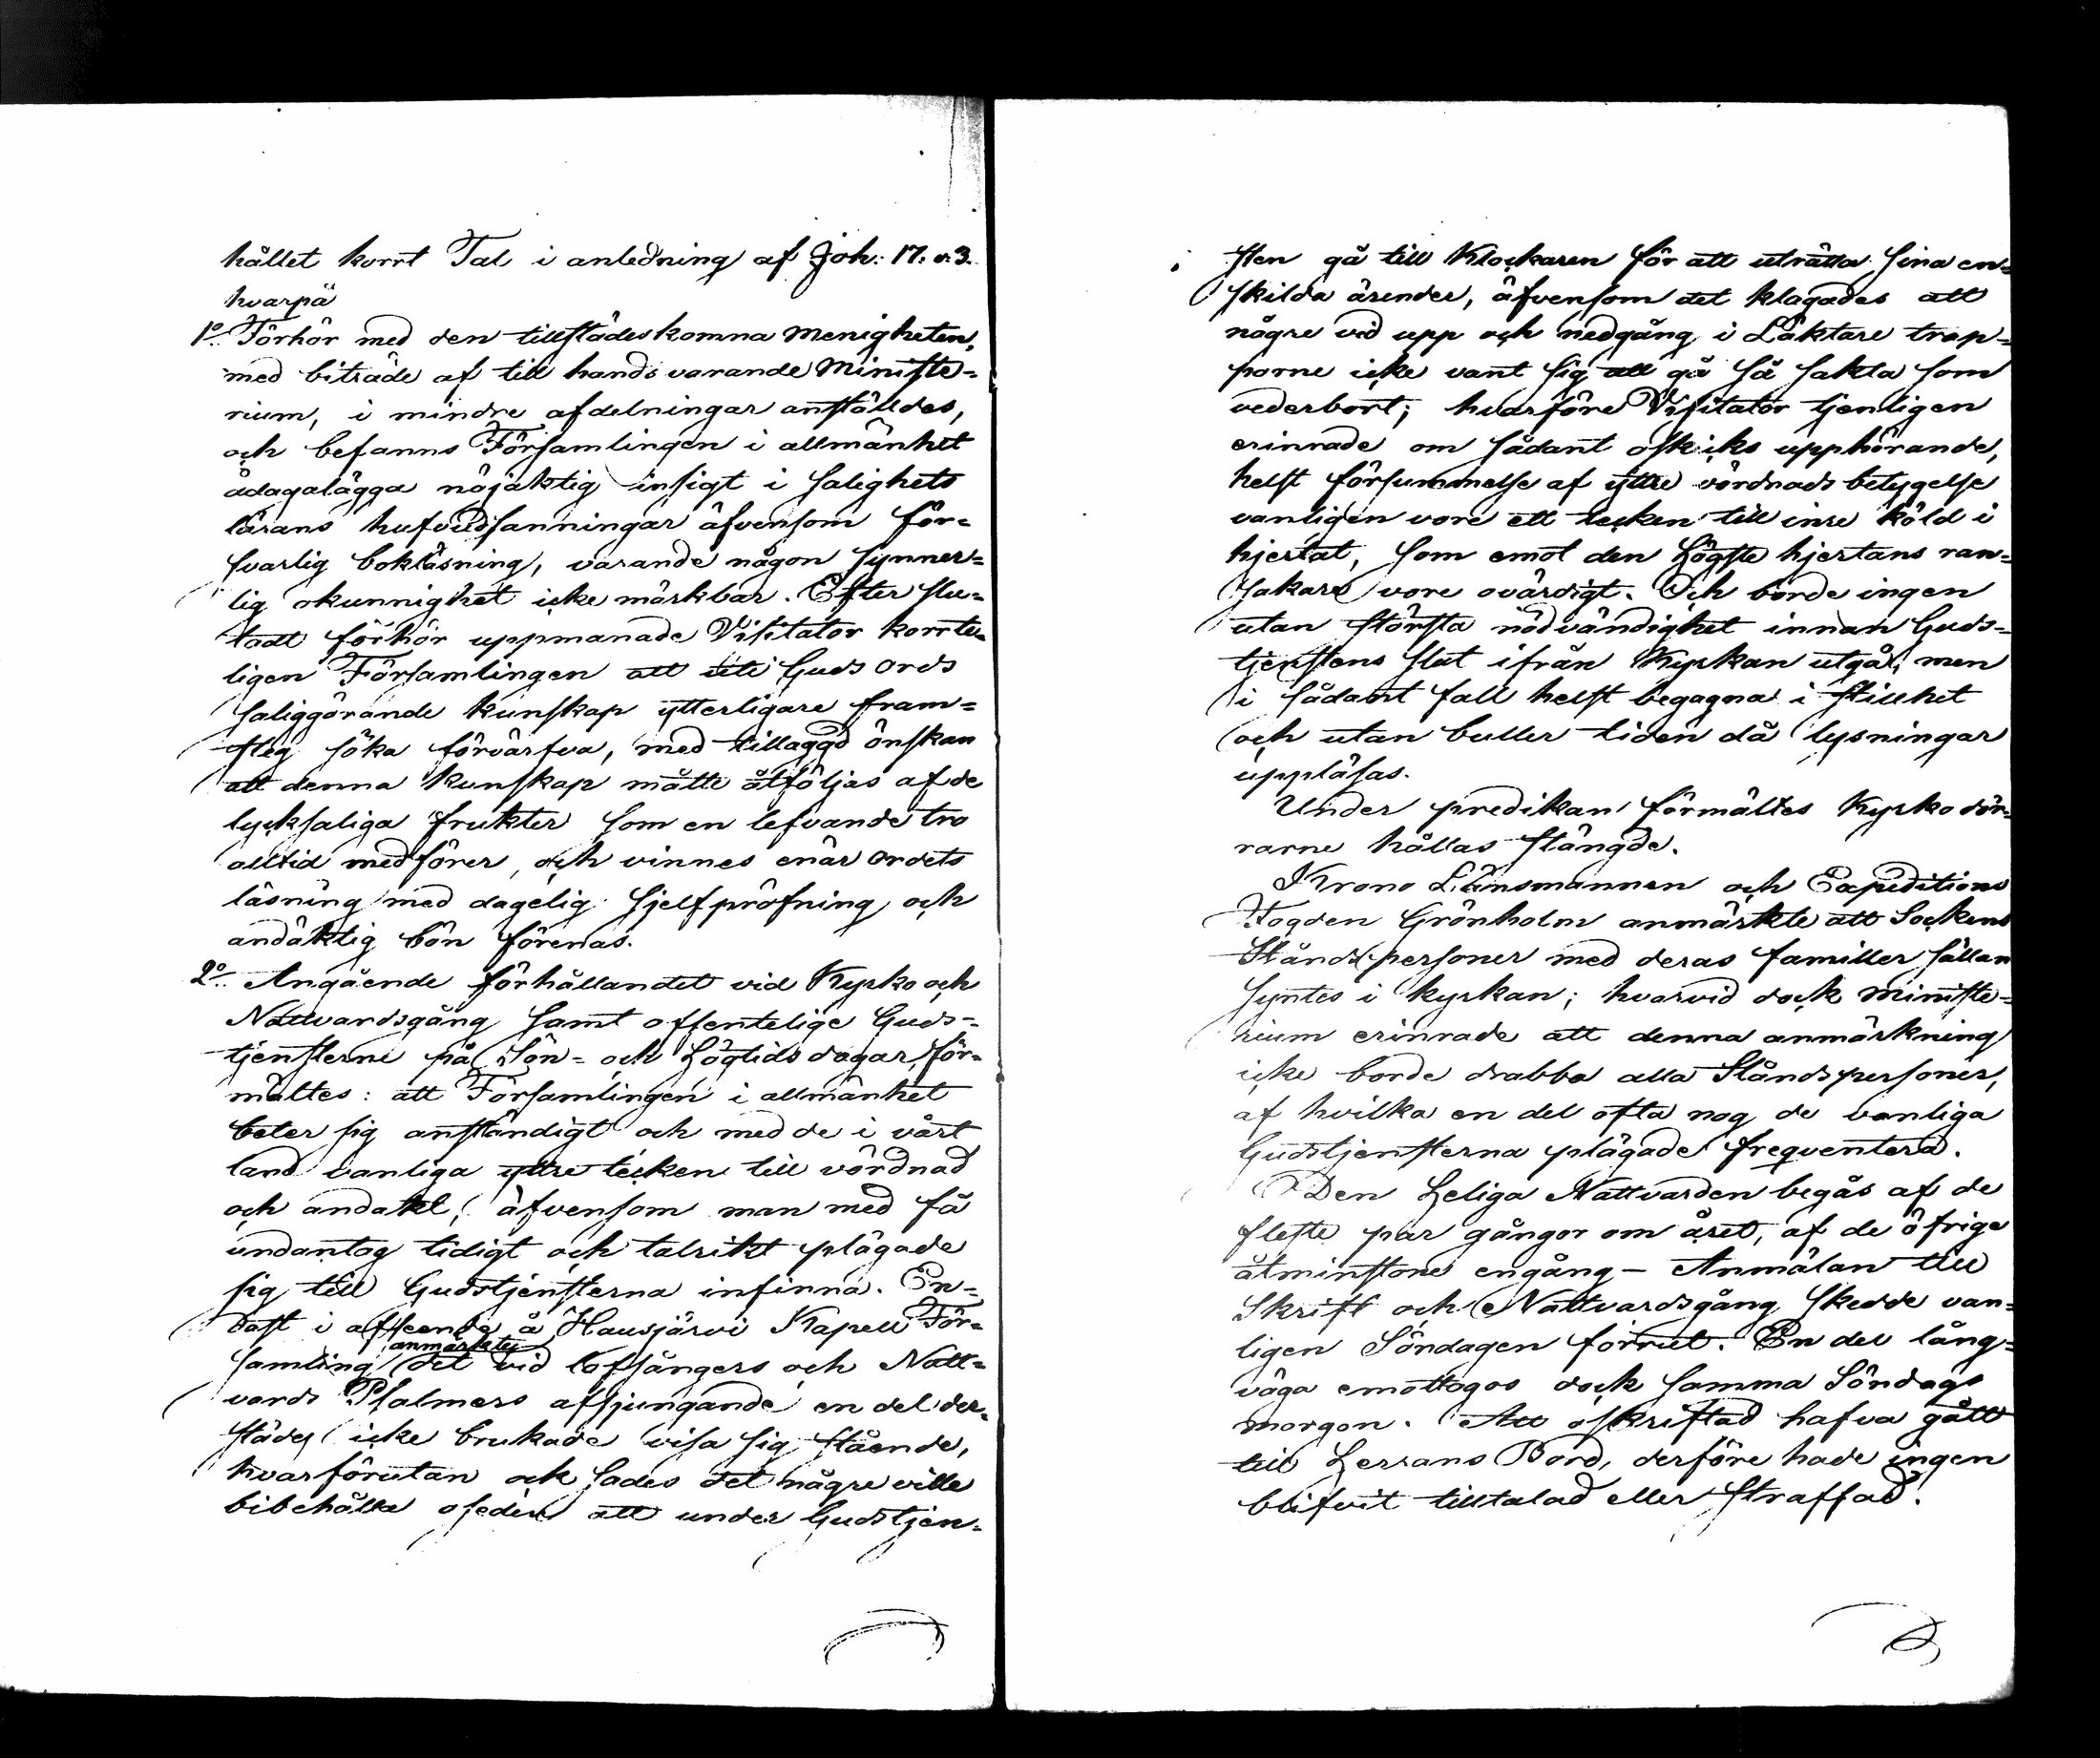 hållet korrt Tal i anledning af Joh: 17. v. 3.
hvarpå
1º Förhör med den tillstädeskomna Menigheten,
med biträde af till hands varande Ministe=
rium, i mindre afdelningar anställdes,
och befanns Församlingen i allmänhet
ådagalägga nöjaktig insigt i salighets
lärans hufvudsanningar äfvensom för=
svarlig bokläsning, varande någon synner=
lig okunnighet icke märkbar. Efter slu=
tadt förhör uppmanade Visitator korrte=
ligen Församlingen att uti Guds Ords
saliggörande kunskap ytterligare fram=
steg söka förvärfva, med tillaggd önskan
att denna kunskap måtte åtföljas af de
lycksaliga frukter som en lefvande tro
alltid medförer, och vinnes enär Ordets
läsning med dagelig sjelfpröfning och
andäktig bön förenas.
2º Angående förhållandet vid Kyrko och
Nattvardsgång samt offentelige Guds=
tjensterne på Sön= och Högtids dagar, för=
mältes: att Församlingen i allmänhet
beter sig anständigt och med de i vårt
land vanliga yttre tecken till vördnad
och andakt, äfvensom man med få
undantag tidigt och talrikt plägade
sig till Gudstjensterna infinna. En=
dast i afseende å Hausjärvi Kapell För=
samling anmärktes det vid Lofsångers och Natt=
vards Psalmers afsjungande en del der=
städes icke brukade visa sig stående,
hvarförutan ock sades det någre ville
bibehålla oseden att under Gudstjen=
sten gå till Klockaren för att uträtta sina en=
skilda ärender, äfvensom det klagades att
någre vid upp och nedgång i Läktare trap=
porne icke vant sig att gå så sakta som
vederbort; hvarföre Visitator tjenligen
erinrade om sådant oskiks upphörande,
helst försummelse af yttre vördnads betygelse
vanligen vore ett tecken till inre köld i
hjertat, som emot den Högste hjertans ran=
sakare vore ovärdigt. Och borde ingen
utan största nödvändighet innan Guds=
tjenstens slut ifrån Kyrkan utgå, men
i sådant fall helst begagna i stillhet
och utan buller tiden då lysningar
uppläsas.
Under predikan förmältes Kyrko dör=
rarne hållas stängde.
Krono Länsmannen och Expeditions
Fogden Grönholm anmärkte att Sockens
Ståndspersoner med deras familler sällan
syntes i kyrkan; hvarvid dock Ministe=
rium erinrade att denna anmärkning
icke borde drabba alla Ståndspersoner,
af hvilka en del ofta nog de vanliga
Gudstjensterna plägade frequentera.
Den Heliga Nattvarden begås af de
fleste par gångor om året, af de öfrige
åtminstone engång – Anmälan till
Skrift och Nattvardsgång skedde van=
ligen Söndagen förrut. En del lång=
väga emottogos dock samma Söndags
morgon. Att oskriftad hafva gått
till Herrans Bord, derföre hade ingen
blifvit tilltalad eller straffad.